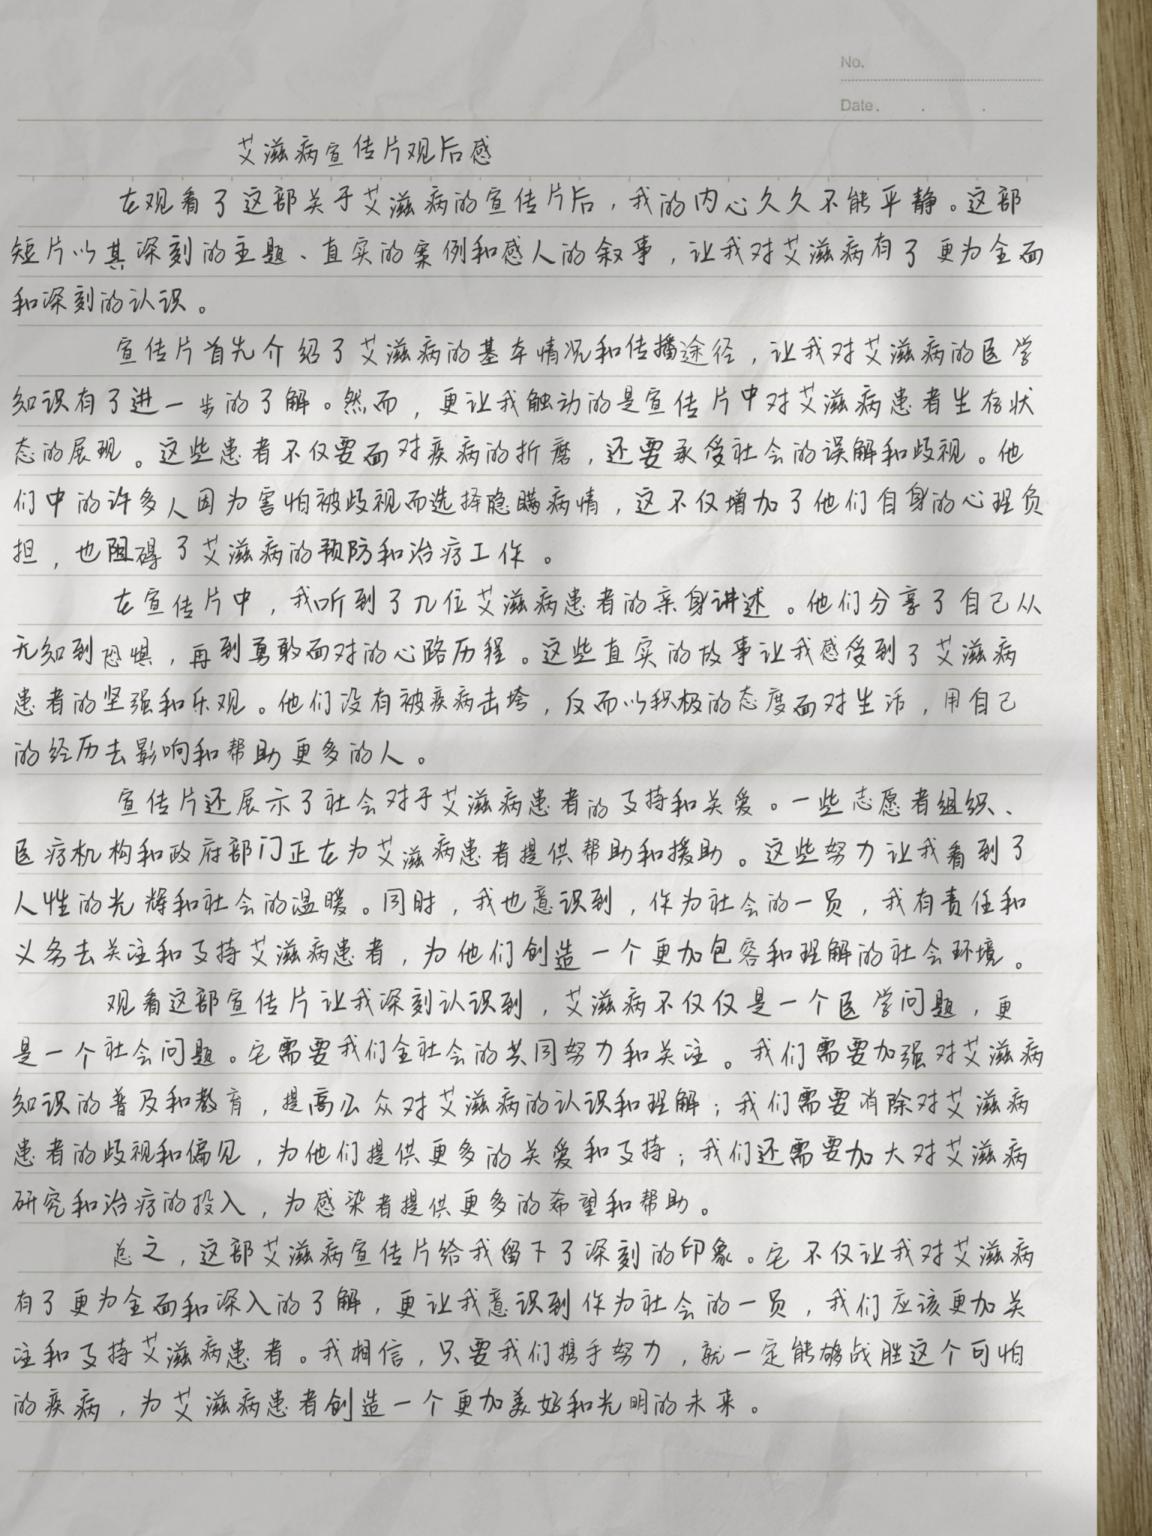 No.
Date.
艾滋病宣传片观后感
在观看了这部关于艾滋病的宣传片后，我的内心久久不能平静。这部
短片以其深刻的主题、直实的案例和感人的叙事，让我对艾滋病有了更为全面
和深刻的认识。
宣传片首先介绍了艾滋病的基本情况和传播途径，让我对艾滋病的医学
知识有了进一步的了解。然而，更让我触动的是宣传片中对艾滋病患者生存状
态的展现。这些患者不仅要面对疾病的折磨，还要承受社会的误解和歧视。他
们中的许多人因为害怕被歧视而选择隐瞒病情，这不仅增加了他们自身的心理负
担，也阻碍了艾滋病的预防和治疗工作。
在宣传片中，我听到了几位艾滋病患者的亲身讲述。他们分享了自己从
无知到恐惧，再到勇敢面对的心路历程。这些直实的故事让我感受到了艾滋病
患者的坚强和乐观。他们没有被疾病击垮，反而以积极的态度面对生活，用自己
的经历去影响和帮助更多的人。
宣传片还展示了社会对于艾滋病患者的支持和关爱。一些志愿者组织、
医疗机构和政府部门正在为艾滋病患者提供帮助和援助。这些努力让我看到了
人性的光辉和社会的温暖。同时，我也意识到，作为社会的一员，我有责任和
义务去关注和支持艾滋病患者，为他们创造一个更加包容和理解的社会环境。
观看这部宣传片让我深刻认识到，艾滋病不仅仅是一个医学问题，更
是一个社会问题。它需要我们全社会的共同努力和关注。我们需要加强对艾滋病
知识的普及和教育，提高公众对艾滋病的认识和理解；我们需要消除对艾滋病
患者的歧视和偏见，为他们提供更多的关爱和支持；我们还需要加大对艾滋病
研究和治疗的投入，为感染者提供更多的希望和帮助。
总之，这部艾滋病宣传片给我留下了深刻的印象。它不仅让我对艾滋病
有了更为全面和深入的了解，更让我意识到作为社会的一员，我们应该更加关
注和支持艾滋病患者。我相信，只要我们携手努力，就一定能够战胜这个可怕
的疾病，为艾滋病患者创造一个更加美好和光明的未来。